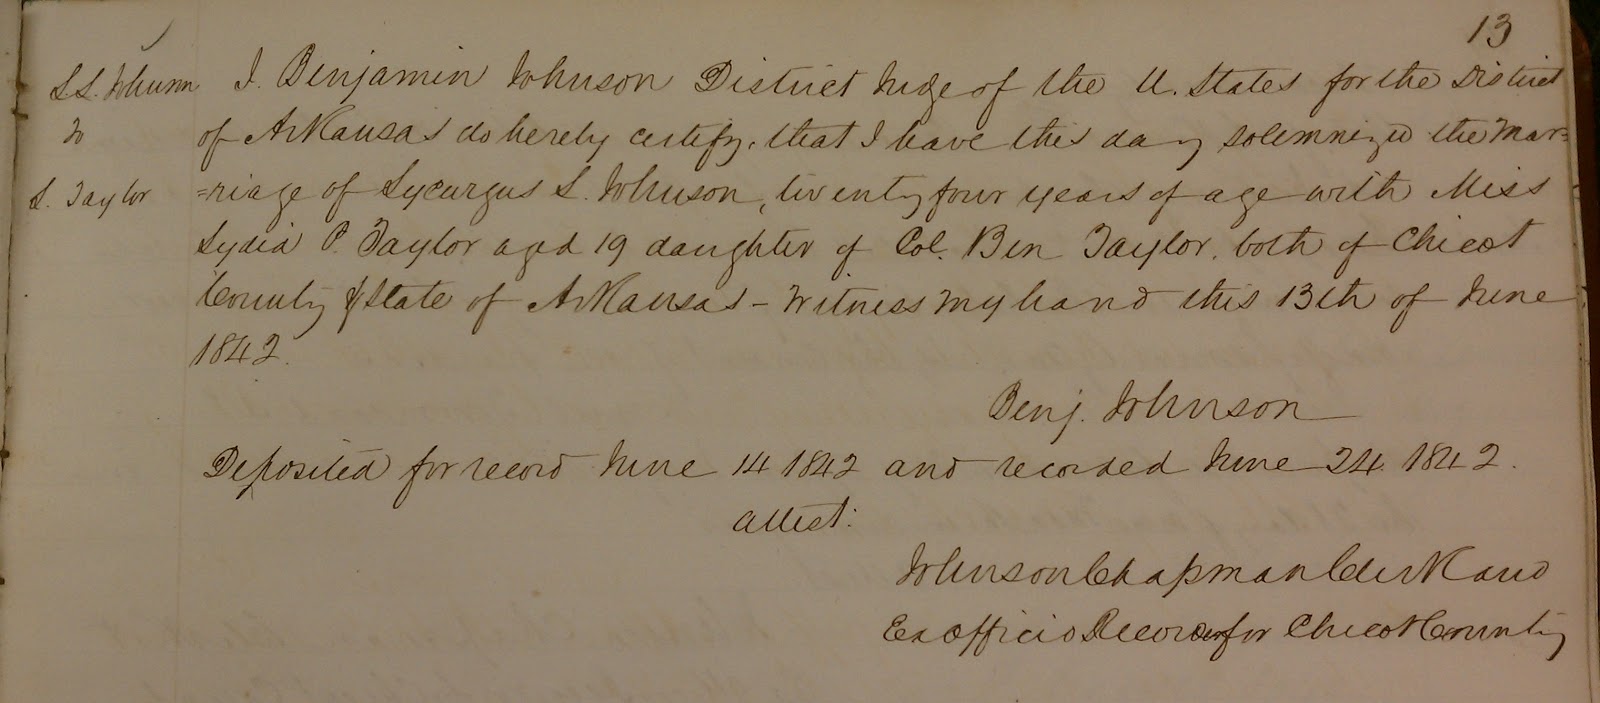 13
L.L. Johnson
to
L. Taylor
I. Benjamin Johnson District Judge of the U. States for the District
of Arkansas do hereby certify, that I have this day solemnized the Mar=
=riage of Lycurgus L. Johnson, twenty four years of age with Miss
Lydia P. Taylor aged 19 daughter of Col. Ben Taylor, both of Chicot
County & State of Arkansas - Witness my hand this 13th of June
1842.
Benj. Johnson
Deposited for record June 14 1842 and recorded June 24 1842.
attest:
Johnson Chapman Clerk and
Ex Officio Recorder for Chicot County